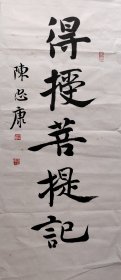 得授菩提記
陳必康